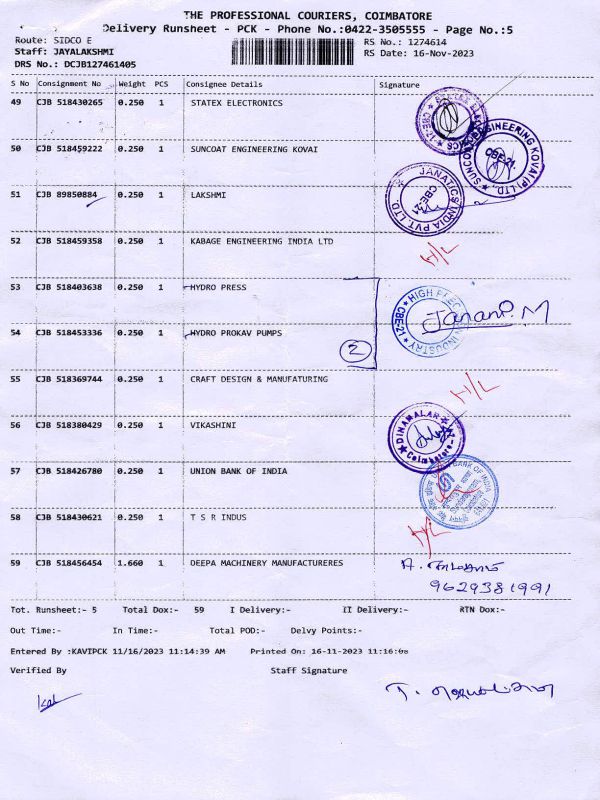 THE PROFESSIONAL COURIERS, COIMBATORE
Delivery Runsheet - PCK - Phone No.:0422-3505555 - Page No.:5
Route: SIDCO E
RS No.: 1274614
Staff: JAYALAKSHMI
RS Date: 16-Nov-2023
DRS No.: DCJB127461405
S No Consignment No Weight PCS Consignee Details Signature
49 CJB 518430265 0.250 1 STATEX ELECTRONICS
50 CJB 518459222 0.250 1 SUNCOAT ENGINEERING KOVAI
SUNCOAT ENGINEERING KOVAI (P) LTD., CBE-21.
51 CJB 89850884 0.250 1 LAKSHMI
JANATICS INDIA PVT. LTD. CBE-21
52 CJB 518459358 0.250 1 KABAGE ENGINEERING INDIA LTD
H/L
53 CJB 518403638 0.250 1 HYDRO PRESS
HIGH INDUSTRY CBE-21
JananP. M
54 CJB 518453336 0.250 1 HYDRO PROKAV PUMPS
2
55 CJB 518369744 0.250 1 CRAFT DESIGN & MANUFATURING
H/L
56 CJB 518380429 0.250 1 VIKASHINI
DINAMALAR Coimbatore
57 CJB 518426780 0.250 1 UNION BANK OF INDIA
BANK OF INDIA
58 CJB 518430621 0.250 1 T S R INDUS
H/L
59 CJB 518456454 1.660 1 DEEPA MACHINERY MANUFACTURERES
9629381991
Tot. Runsheet:- 5 Total Dox:- 59 I Delivery:- II Delivery:- RTN Dox:-
Out Time:- In Time:- Total POD:- Delvy Points:-
Entered By :KAVIPCK 11/16/2023 11:14:39 AM Printed On: 16-11-2023 11:16:08
Verified By Staff Signature